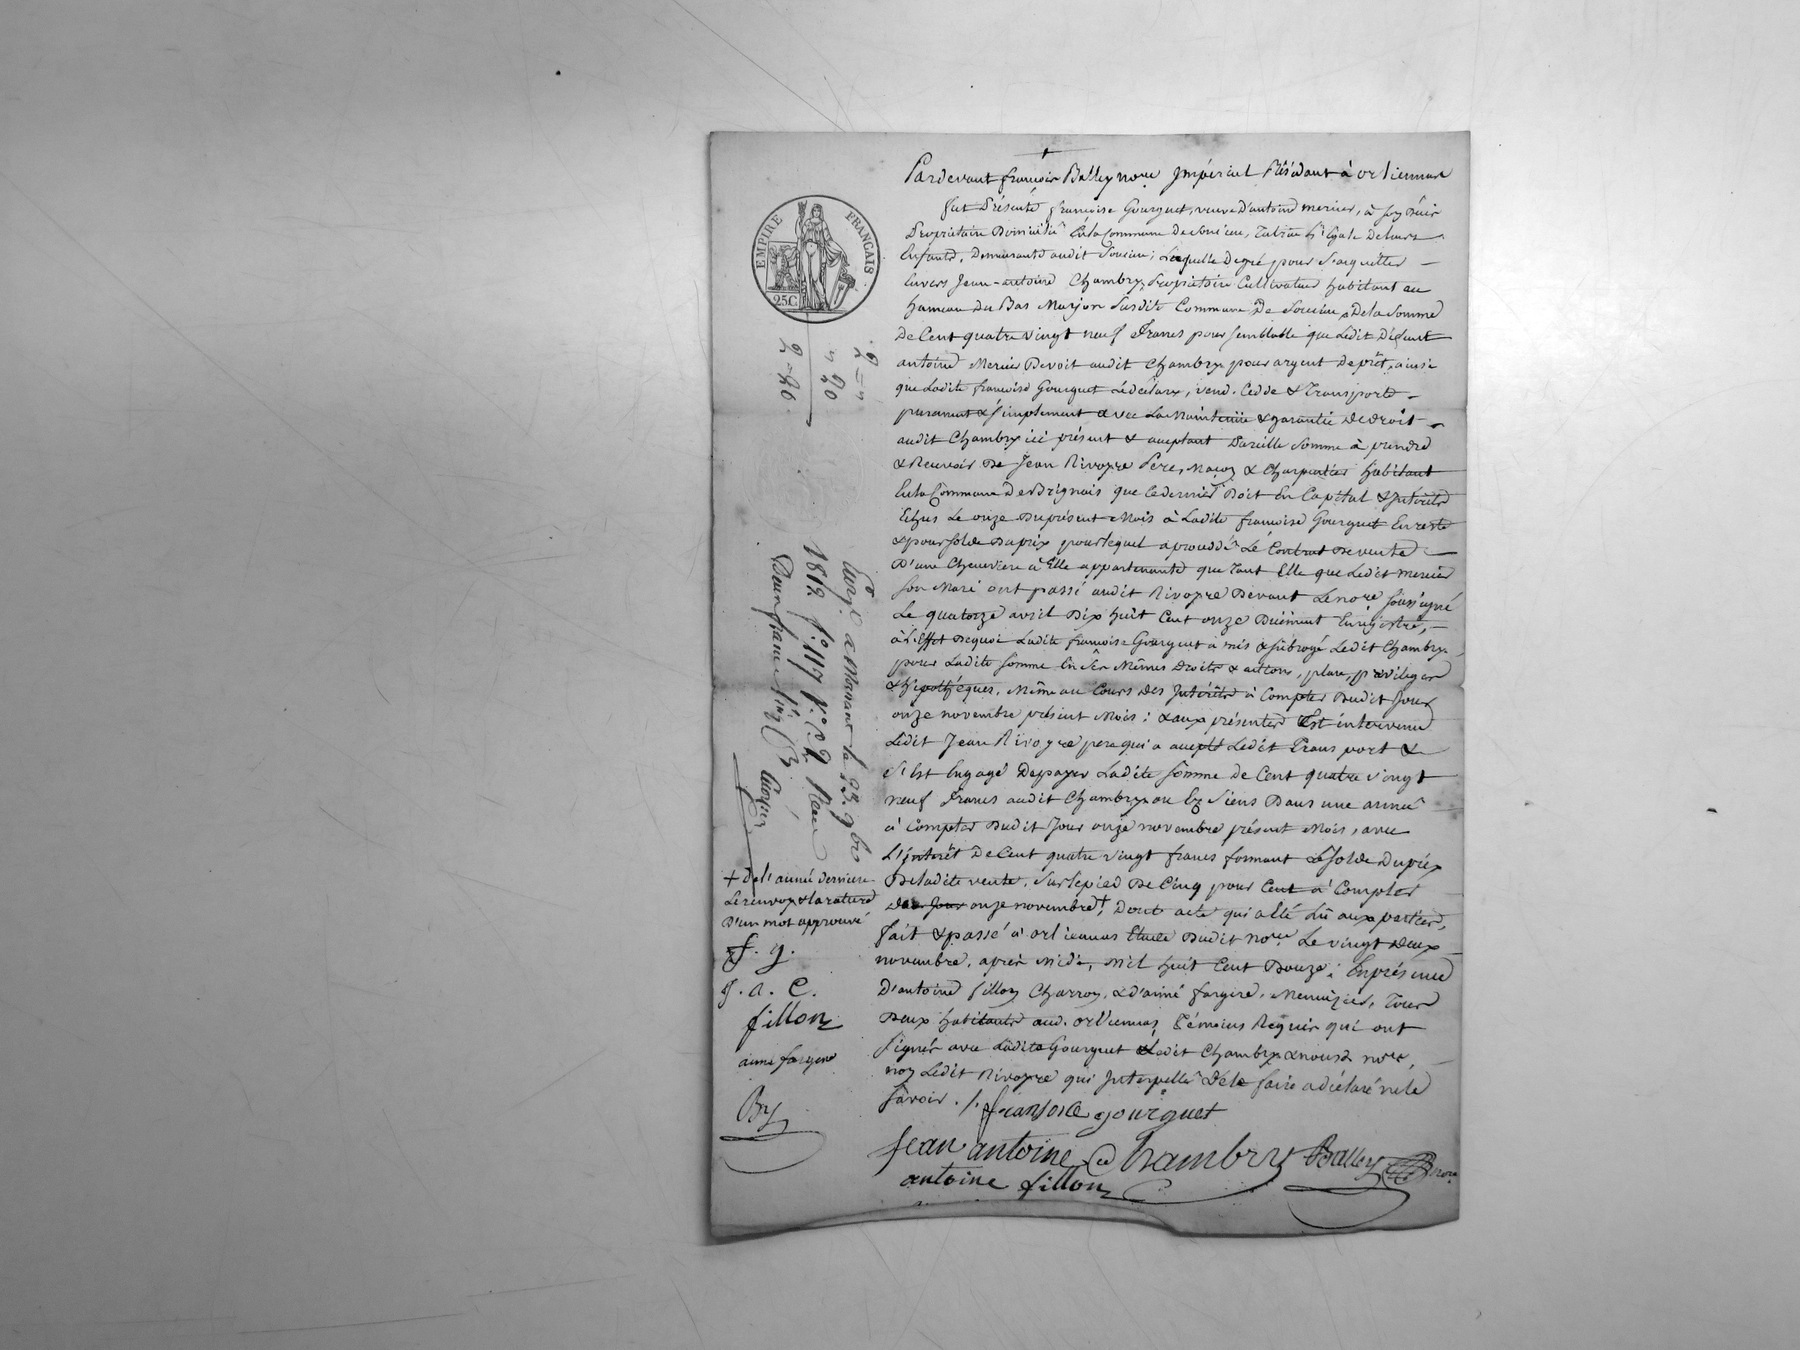 Pardevant françois Balley no.re Impérial Résidant à orliennas
fut Présente françoise Gourguet, veuve D'antoine mercier, à son Décès
Propriétaire Domicilié En la Commune de Soucieu, Tutrice légale de leurs
Enfants, Demeurante audit Soucieu; Laquelle de gré pour s'acquitter
Envers Jean-antoine Chambry, Propriétaire Cultivateur habitant au
hameau Du Bas Marjon Susdite Commune De Soucieu, De la Somme
De Cent quatre vingt neuf francs pour semblable que Ledit Défunt
antoine Mercier Devoit audit Chambry pour argent de prêt, ainsi
que Ladite françoise Gourguet Le déclare, vend. Cedde & Transporte
purement & simplement avec La Maintenüe & garantie de droit
audit Chambry ici présent & acceptant Pareille Somme à prendre
& Recevoir De Jean Rivoyre Pere, Maçon & Charpentier habitant
En la Commune De Brignais que ce dernier Doit En Capital & Intérêts
Echus Le onze Du présent Mois à Ladite françoise Gourguet En reste
& pour solde Du prix pour lequel a procédé Le Contrat De vente
D'une Cheneviere à Elle appartenante que Tant Elle que Ledit mercier
Son Mari ont passé audit Rivoyre Devant Le no.re soussigné
Le quatorze avril Dix huit Cent onze Düement Enregistré,
à L'Effet De quoi Ladite françoise Gourguet a mis & subrogé Ledit Chambry
pour Ladite Somme En ses Mêmes Droits & actions, place, privilèges
& hipothéques, Même au Cours des Intérêts à Compter Dudit Jour
onze novembre présent Mois: & aux présentes Est intervenu
Ledit Jean Rivoyre pere qui a accepté Ledit Transport &
S'Est Engagé De payer Ladite Somme de Cent quatre vingt
neuf francs audit Chambry ou Ez Siens Dans une année
à Compter Dudit Jour onze novembre présent Mois, avec
L'intérêt De Cent quatre vingt francs formant Le Solde Du prix
De Ladite vente, Sur le pied De Cinq pour Cent à Compter
onze novembre +; Dont acte qui a Eté Lû aux parties,
fait & passé à orliennas Etude Dudit no.re Le vingt Deux
novembre, après Midi, Mil huit Cent Douze; En présence
D'antoine fillon Charron, & d'aimé fargere, Menuisier, Tous
Deux habitants aud. orliennas, Témoins Requis qui ont
Signés avec Ladite Gourguet & Ledit Chambry & nousd. no.re,
non Ledit Rivoyre qui Interpellé De le faire a déclaré ne le
Savoir. /.
françoise gourguet
Jean antoine Chambry Balley no.re
antoine fillon
EMPIRE FRANÇAIS
25C
2 = "
" 20
2 = 20
Enregé à Mornant le 23 9bre
1812 f.o 117 v.o C. 2 Reçu
Deux francs vingt C.
+ De l'année Derniere
Le renvoy & la rature
D'un mot approuvé
f. g.
J. a. C.
fillon
aimé fargere
By